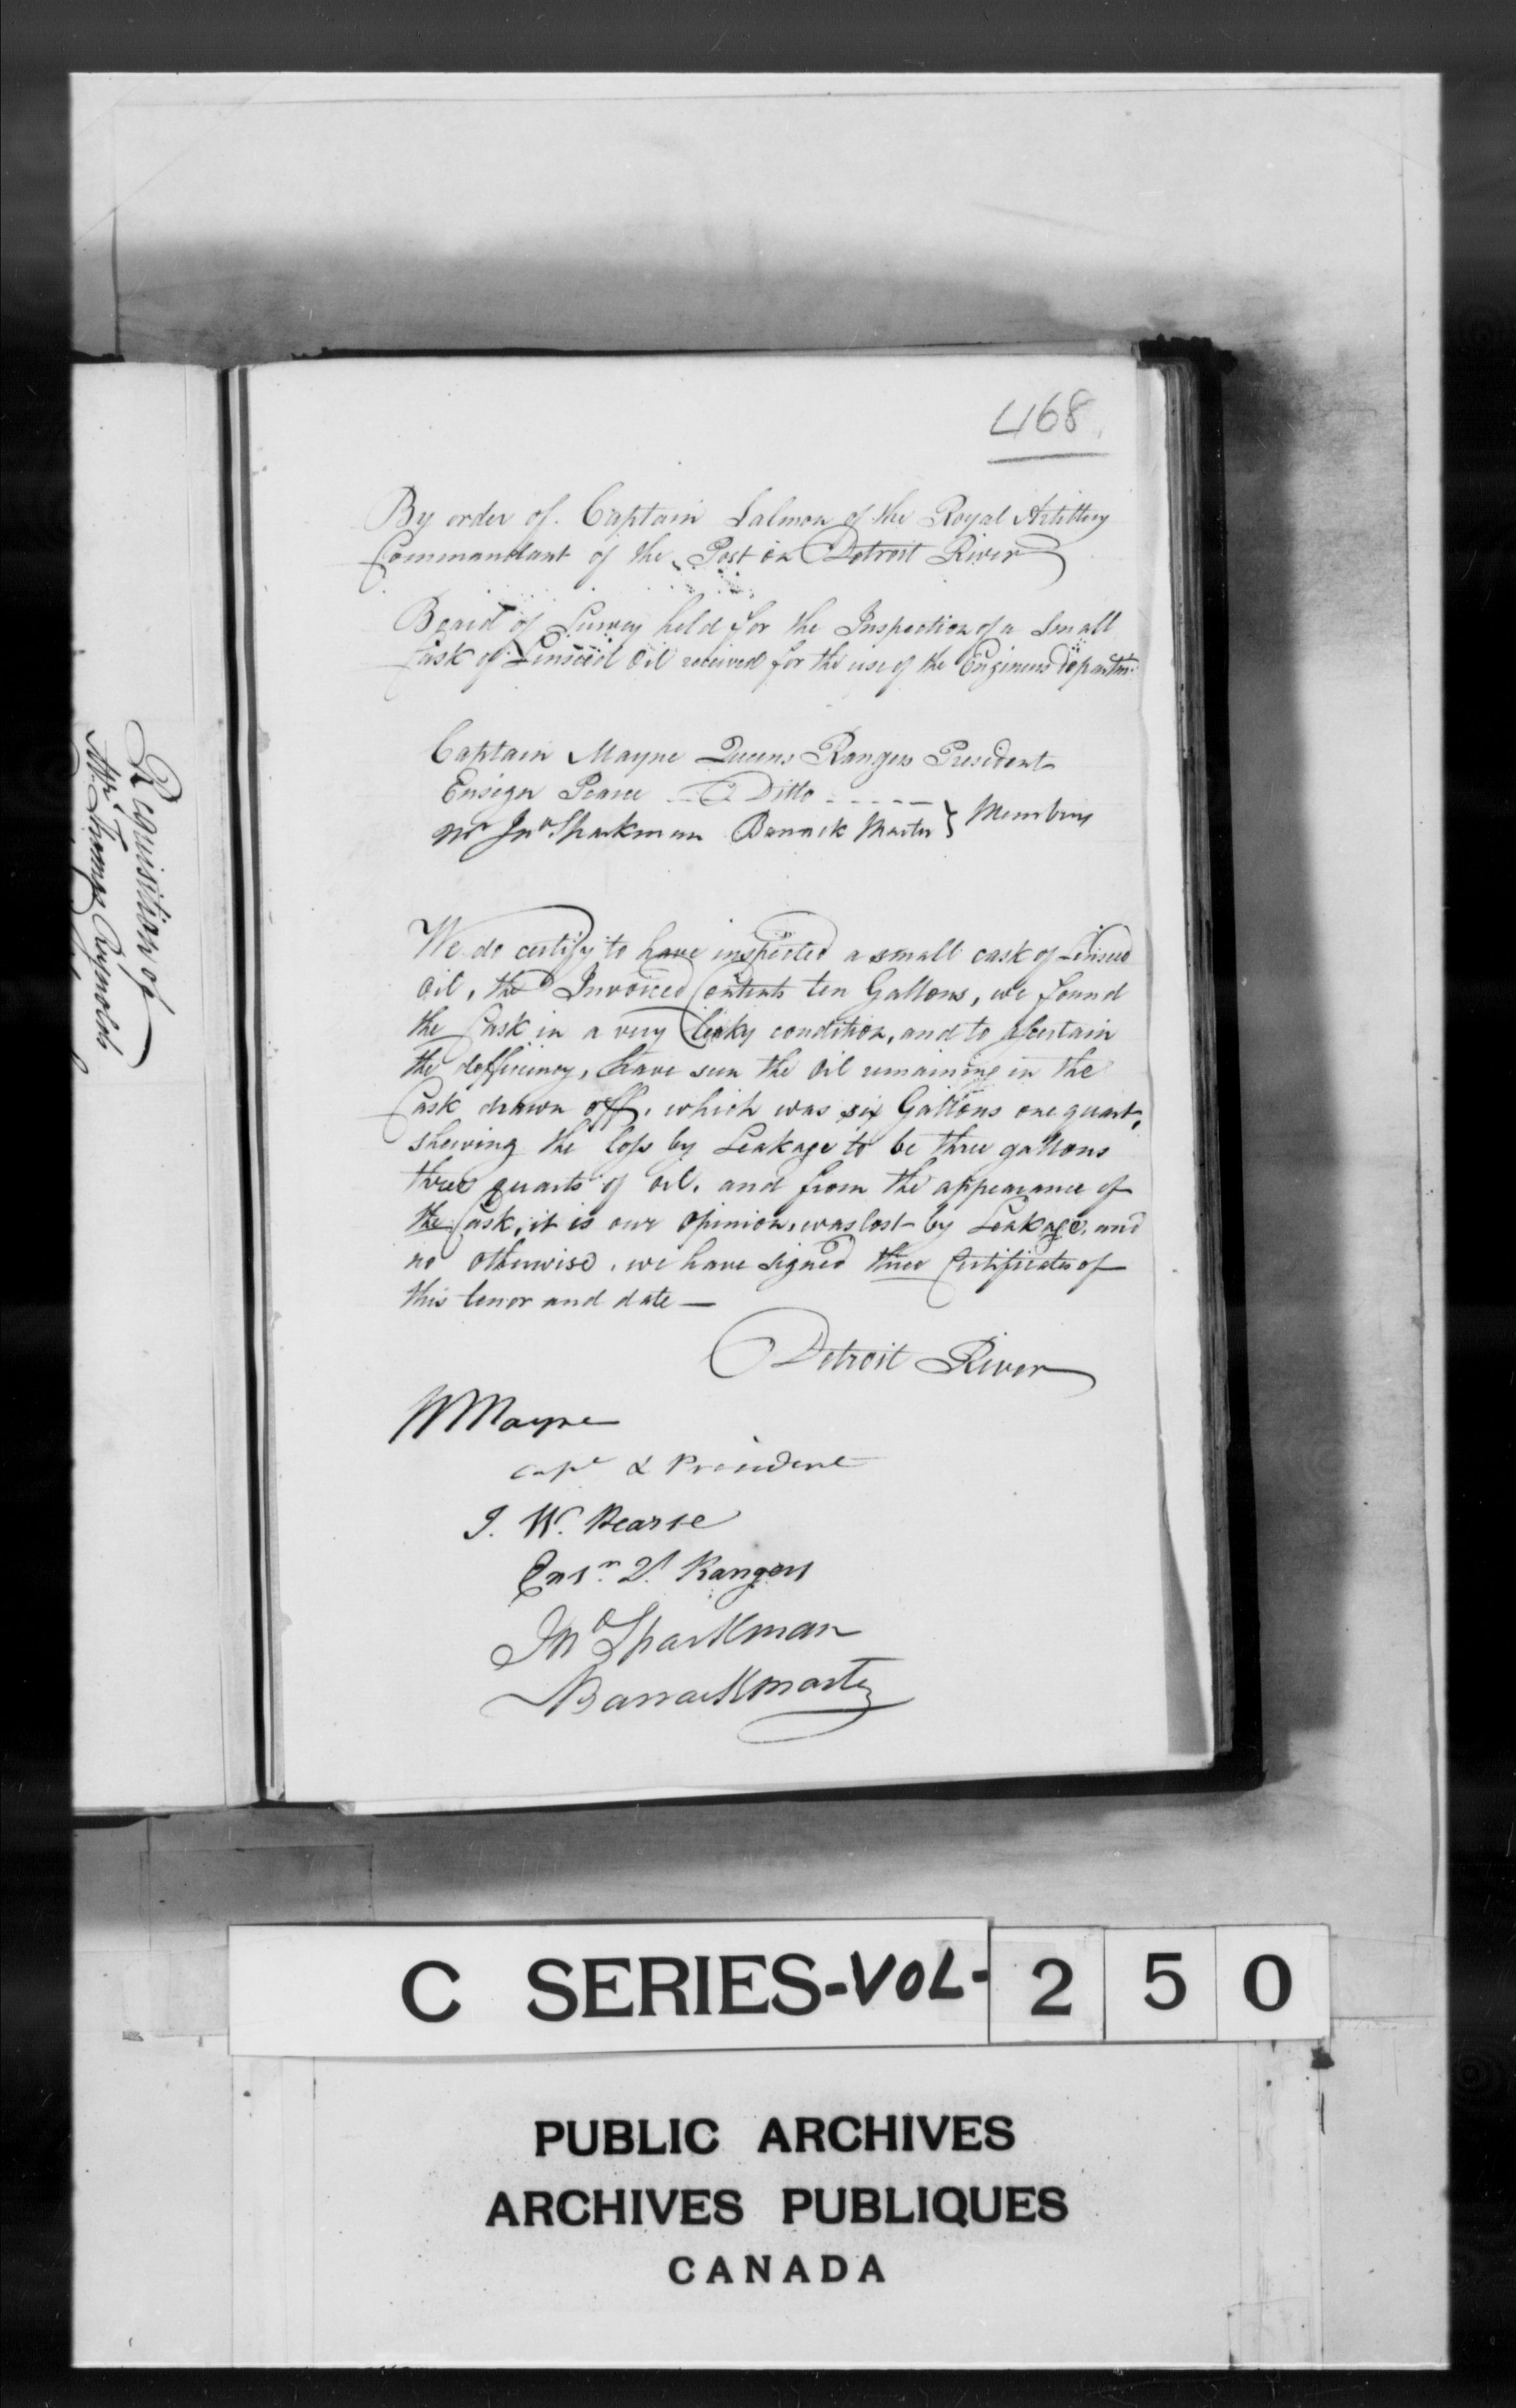 468.
By order of Captain Salmon of the Royal Artillery
Commandant of the Post on Detroit River
Board of Survey held for the Inspection of a Small
Cask of Linseed Oil received for the use of the Engineers departmt
Captain Mayne Queens Rangers President
Ensign Pearce Ditto
Mr Jno Sparkman Barrack Master } Members
We do certify to have inspected a small cask of Linseed
Oil, the Invoiced Contents ten Gallons, we found
the Cask in a very leaky condition, and to ascertain
the defficiency, have seen the Oil remaining in the
Cask drawn off, which was six Gallons one quart,
shewing the loss by Leakage to be three gallons
three quarts of oil, and from the appearance of
the Cask, it is our opinion, was lost by Leakage, and
no otherwise, we have signed three Certificates of
this tenor and date —
Detroit River
W Mayne
Capt & President
J. W. Pearse
Ensn. Q. Rangers
Jno Sparkman
Barrackmaster
Requisition of
Mr. Thomas Reynolds
C SERIES-VOL-250
PUBLIC ARCHIVES
ARCHIVES PUBLIQUES
CANADA